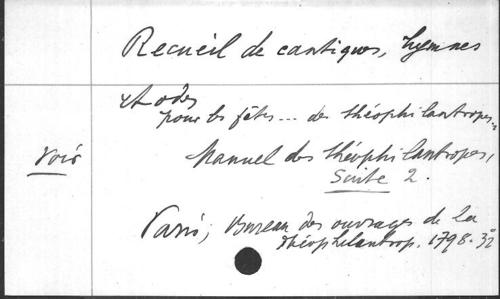 Recueil de cantiques, hymnes
et odes
pour les fêtes... des théophilantropes..
voir
Manuel des théophilantropes,
Suite 2.
Paris, Bureau des ouvrages de la
théophilantrop. 1798. 32°